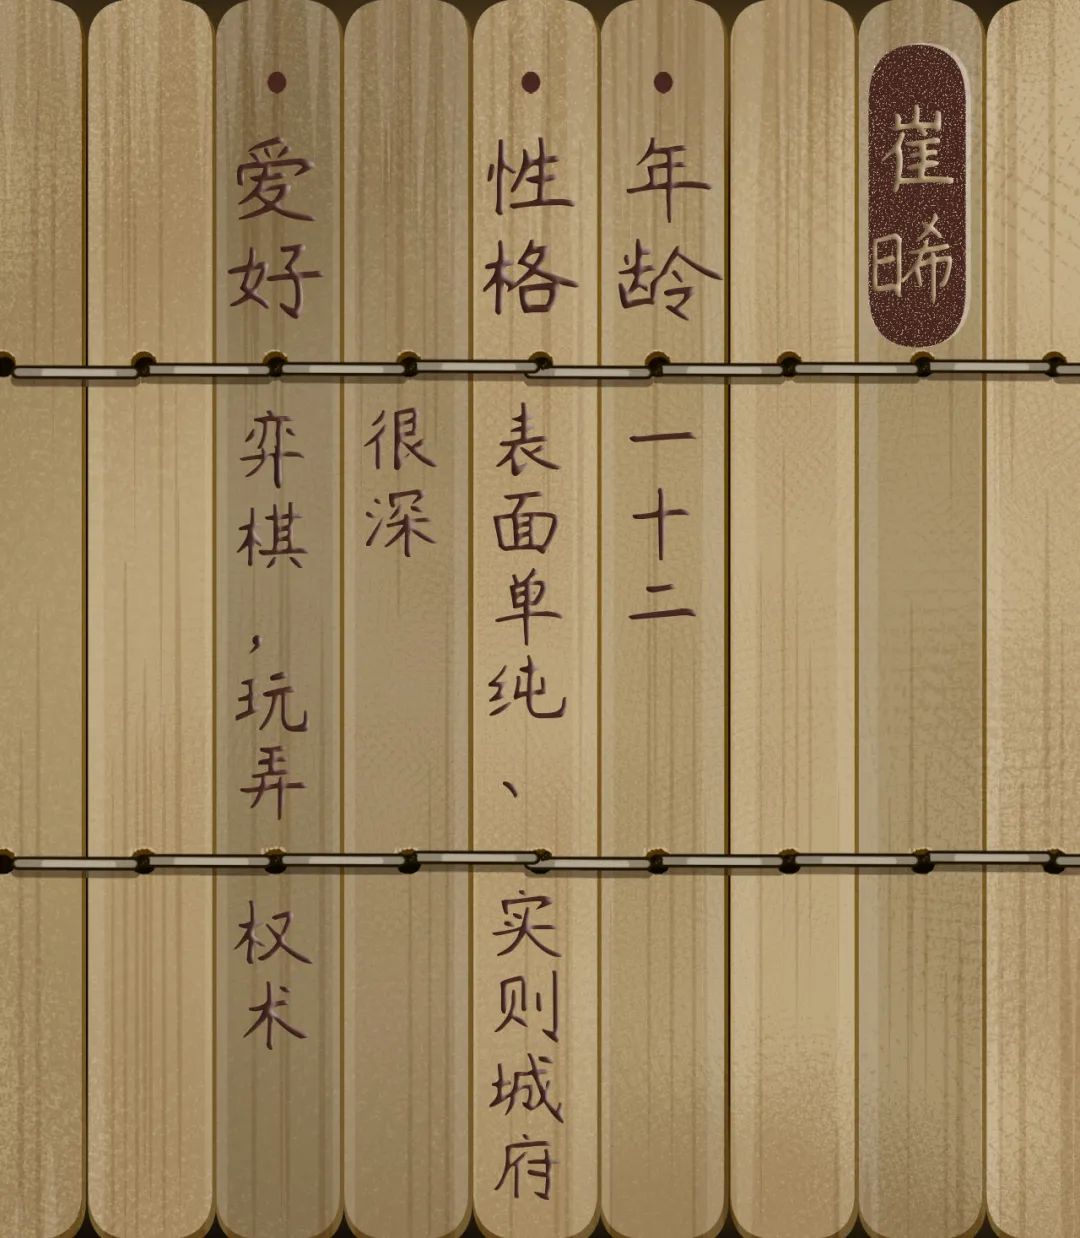 崔晞
•年龄 一十二
•性格 表面单纯、实则城府
很深
•爱好 弈棋，玩弄权术